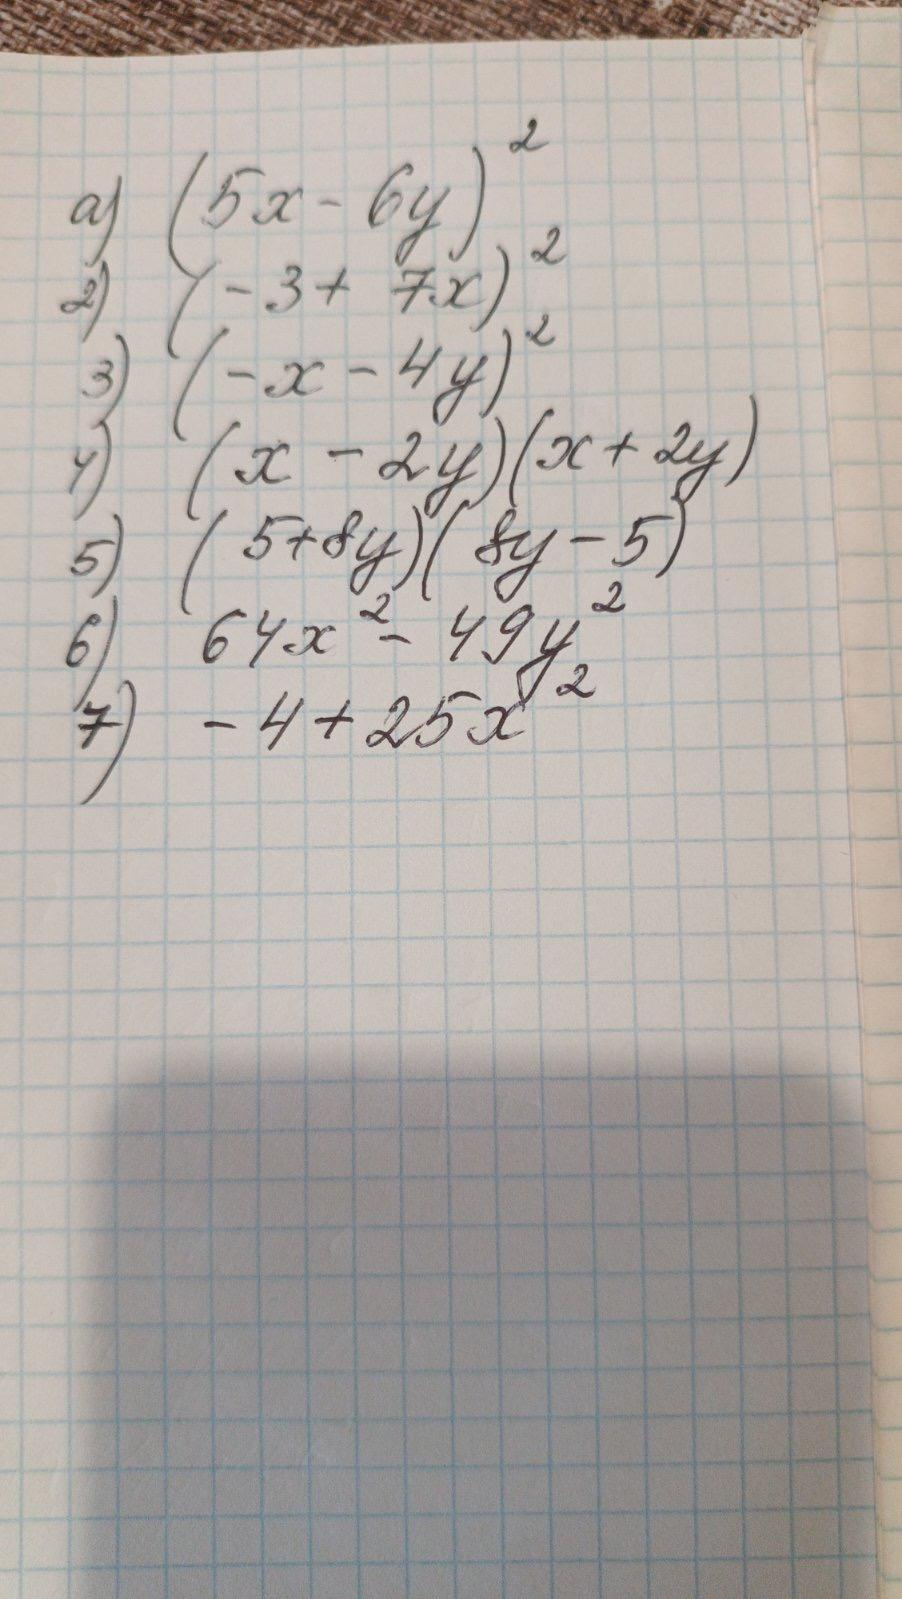 а) (5x - 6y)²
2) (-3 + 7x)²
3) (-x - 4y)²
4) (x - 2y)(x + 2y)
5) (5+8y)(8y - 5)
6) 64x² - 49y²
7) -4 + 25x²